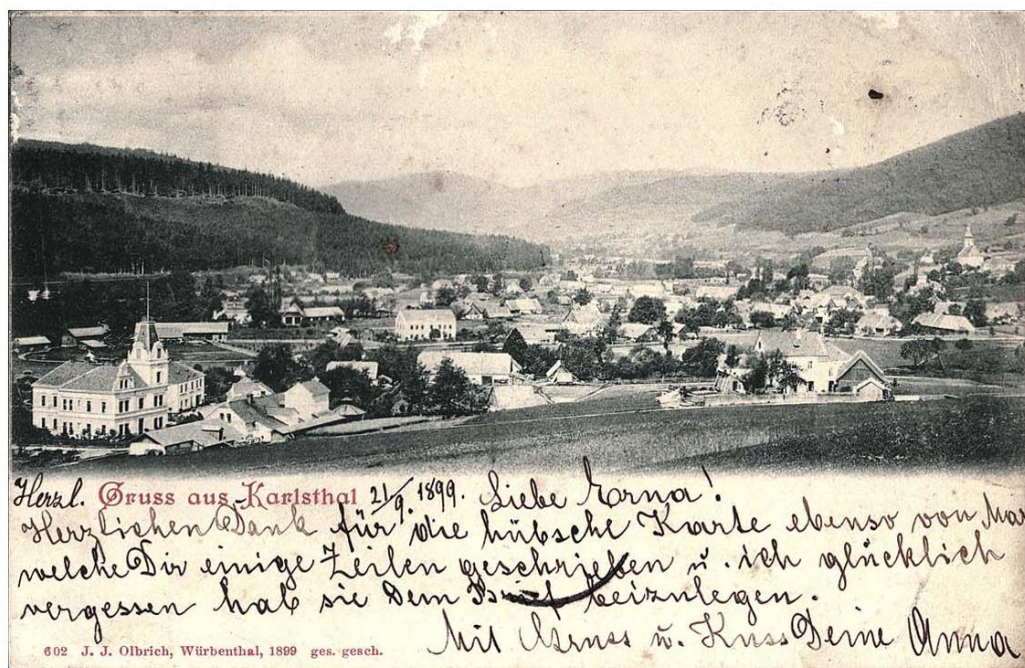 Herzl. Gruss aus Karlsthal 21/9. 1899. Liebe Erna!
Herzlichen Dank für die hübsche Karte ebenso von
welche Dir einige Zeilen geschrieben u. ich glücklich
vergessen hab sie Dem beizulegen.
Mit Gruss u. Kuss Deine Anna
602 J. J. Olbrich, Würbenthal, 1899 ges. gesch.